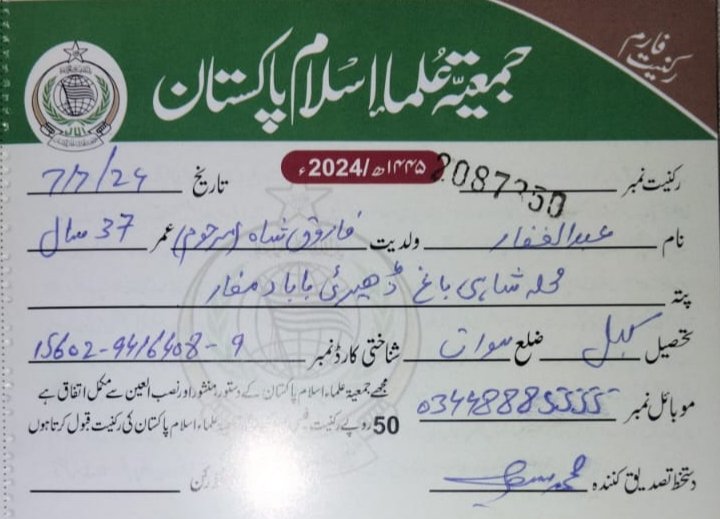 رکنیت فارم
جمعیۃ علماءِ اسلام پاکستان
۱۴۴۵ھ/2024ء
رکنیت نمبر 2087350 تاریخ 7/7/24
نام عبدالغفار ولدیت فاروق شاہ (مرحوم) عمر 37 سال
پتہ محلہ شاہی باغ ڈھیرئی بابا
تحصیل کبل ضلع سوات شناختی کارڈ نمبر 15602-9416408-9
موبائل نمبر 03448885555
مجھے جمعیۃ علماء اسلام پاکستان کے دستور، منشور اور نصب العین سے مکمل اتفاق ہے
50 روپے رکنیت علماء اسلام پاکستان کی رکنیت قبول کرتا ہوں
دستخط تصدیق کنندہ رکن